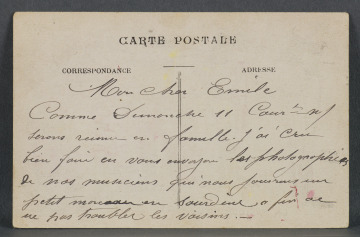 CARTE POSTALE
CORRESPONDANCE
ADRESSE
Mon cher Emile
Comme Dimanche 11 Cour
serons reunis en famille j'ai cru
bien faire en vous envoyan les photographies
de nos musiciens qui nous joueront un
petit morceau en sourdine afin de
ne pas troubler les voisins. —